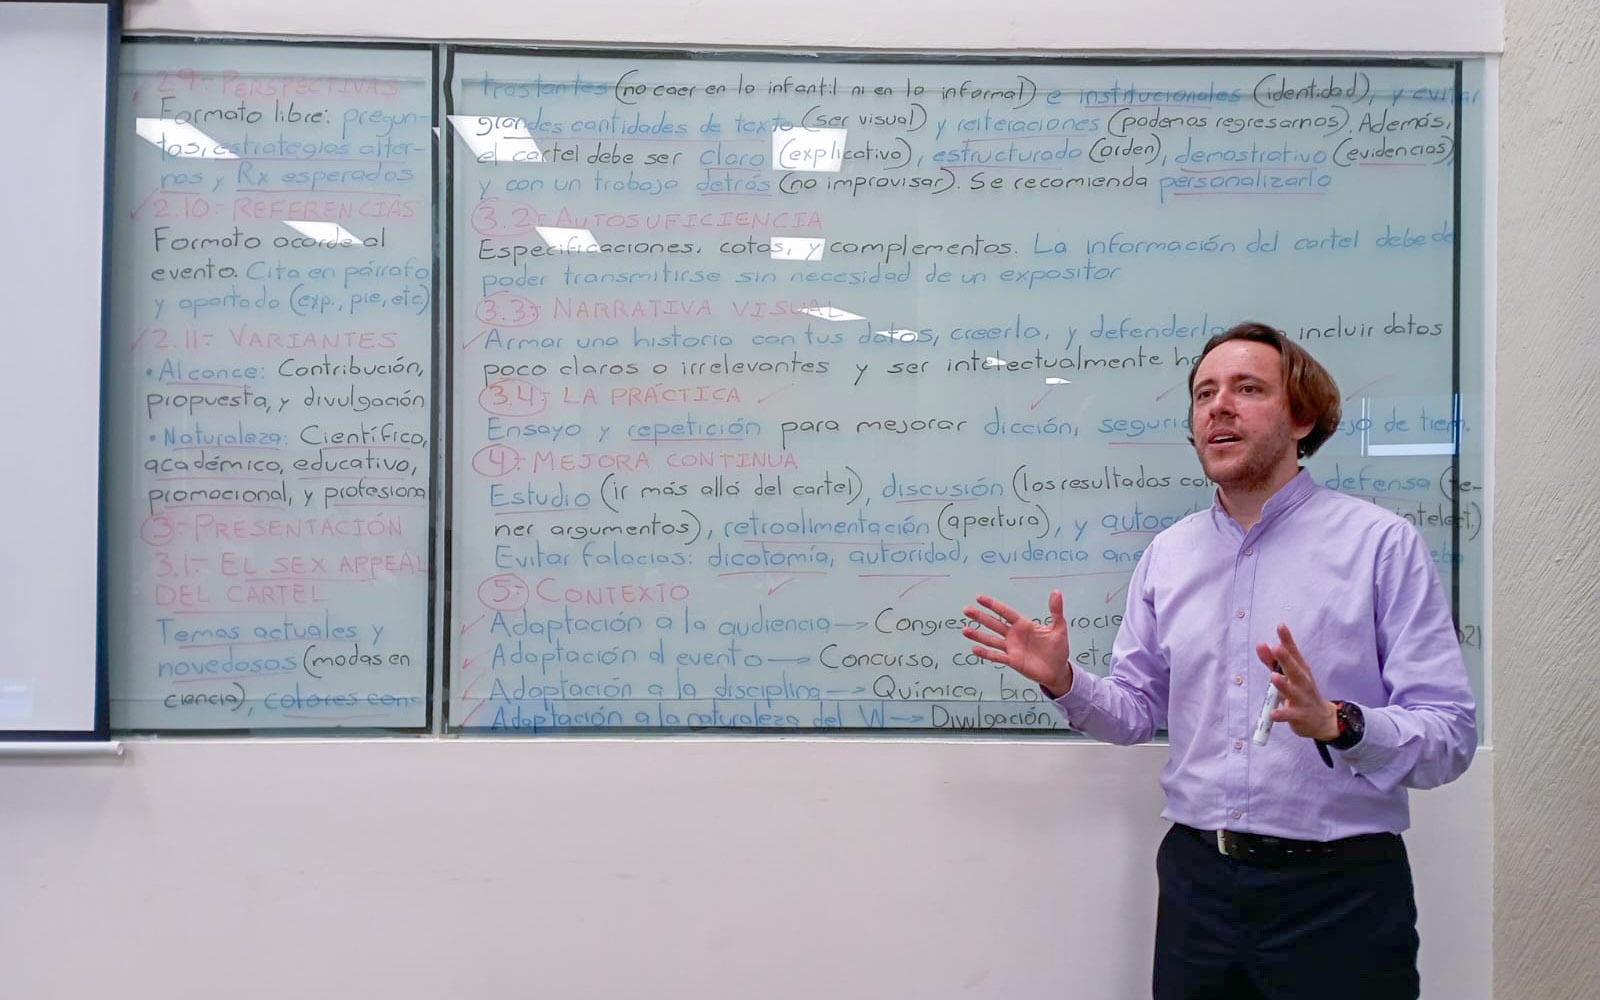 2.9.- PERSPECTIVAS
Formato libre: pregun-
tas, estrategias alter-
nas y Rx esperados
2.10.- REFERENCIAS
Formato acorde al
evento. Cita en párrafo
y apartado (exp., pie, etc)
2.11.- VARIANTES
• Alcance: Contribución,
propuesta, y divulgación
• Naturaleza: Científico,
académico, educativo,
promocional, y profesiona
3.- PRESENTACIÓN
3.1.- EL SEX APPEAL
DEL CARTEL
Temas actuales y
novedosos (modas en
ciencia), colores con-
trastantes (no caer en lo infantil ni en lo informal) e institucionales (identidad), y evitar
grandes cantidades de texto (ser visual) y reiteraciones (podemos regresarnos). Además,
el cartel debe ser claro (explicativo), estructurado (orden), demostrativo (evidencias)
y con un trabajo detrás (no improvisar). Se recomienda personalizarlo
3.2.- AUTOSUFICIENCIA
Especificaciones, cotas, y complementos. La información del cartel debe de
poder transmitirse sin necesidad de un expositor
3.3.- NARRATIVA VISUAL
Armar una historia con tus datos, creerla, y defenderla incluir datos
poco claros o irrelevantes y ser intelectualmente
3.4.- LA PRÁCTICA
Ensayo y repetición para mejorar dicción, de tiem.
4.- MEJORA CONTINUA
Estudio (ir más allá del cartel), discusión (los resultados defensa (te-
ner argumentos), retroalimentación (apertura), y
Evitar falacias: dicotomía, autoridad, evidencia
5.- CONTEXTO
Adaptación a la audiencia → Congreso
Adaptación al evento → Concurso, etc
Adaptación a la disciplina → Química,
Adaptación a la naturaleza del W → Divulgación,